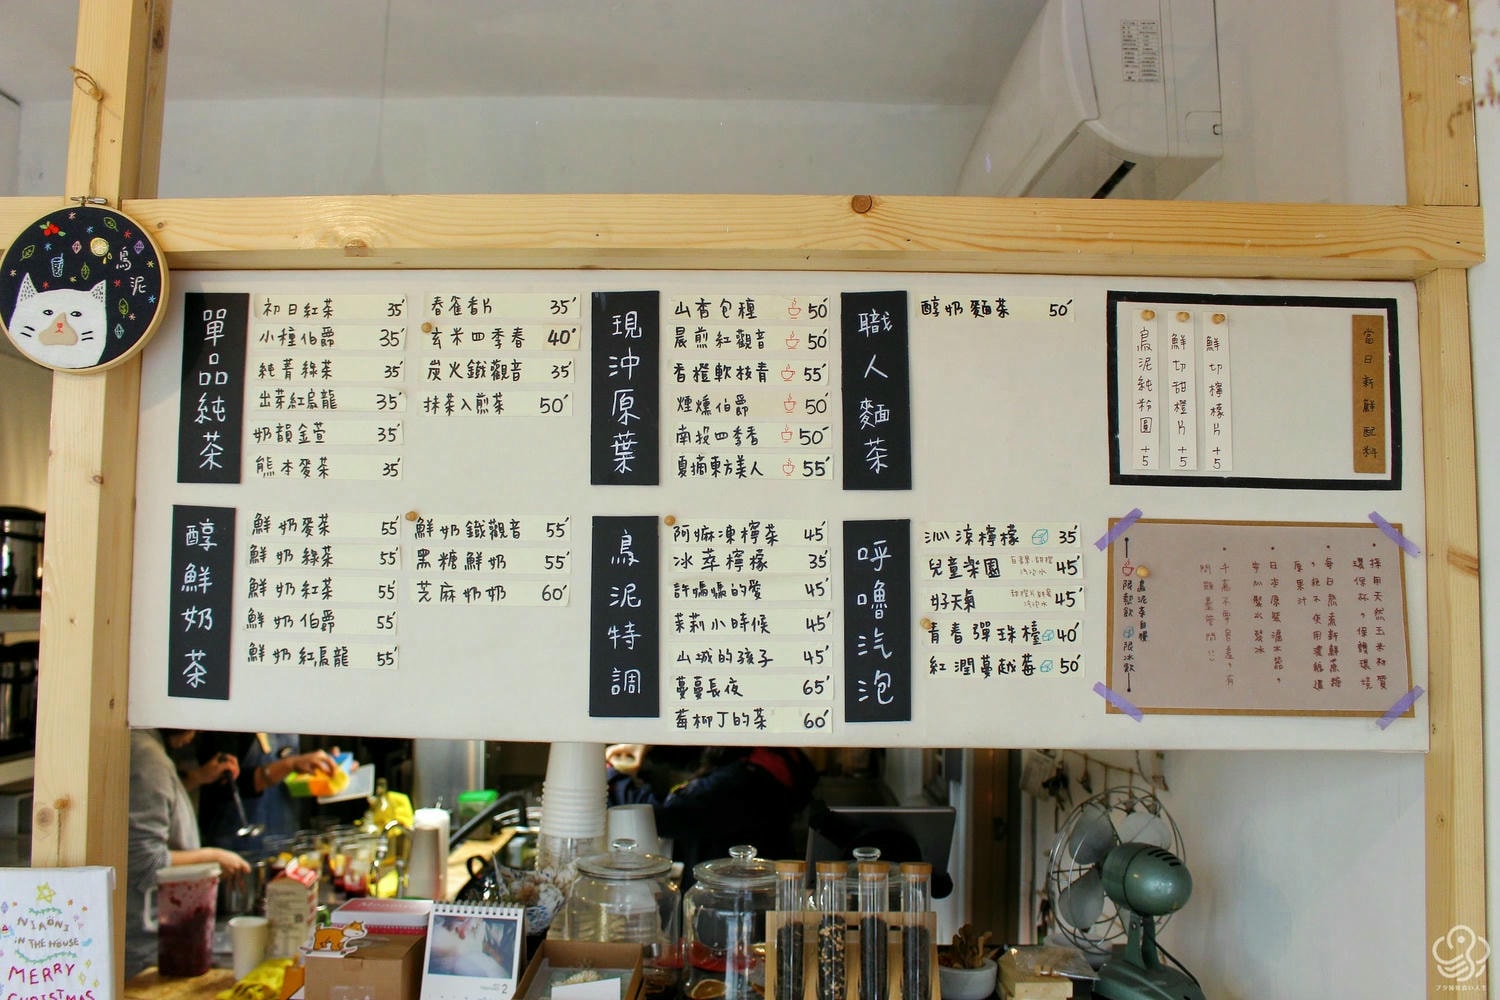 鳥
泥
單品純茶
初日紅茶 35
小種伯爵 35
純菁綠茶 35
出芽紅烏龍 35
奶韻金萱 35
熊本麥茶 35
春雀香片 35
玄米四季春 40
炭火鐵觀音 35
抹茶入煎茶 50
現沖原葉
山香包種 50
晨煎紅觀音 50
香橙軟枝青 55
煙燻伯爵 50
南投四季香 50
夏摘東方美人 55
職人麵茶
醇奶麵茶 50
當日新鮮配料
鮮切檸檬片 +5
鮮切甜橙片 +5
鳥泥純粉圓 +5
醇鮮奶茶
鮮奶麥茶 55
鮮奶綠茶 55
鮮奶紅茶 55
鮮奶伯爵 55
鮮奶紅烏龍 55
鮮奶鐵觀音 55
黑糖鮮奶 55
芝麻奶奶 60
鳥泥特調
阿嬤凍檸茶 45
冰萃檸檬 35
許媽媽的愛 45
茉莉小時候 45
山城的孩子 45
蔓蔓長夜 65
莓柳丁的茶 60
呼嚕汽泡
沁涼檸檬 35
兒童樂園 45
好天氣 45
青春彈珠檯 40
紅潤蔓越莓 50
採用天然玉米材質
環保杯，保護環境
每日熬煮新鮮蔗糖
，絕不使用濃縮還
原果汁
日本原裝濾水器，
安心製水製冰
千萬不要害羞，有
問題盡管問!!
鳥泥李自檬
限熱飲 限冰飲
NIAONI
IN THE HOUSE
MERRY
CHRISTMAS
2